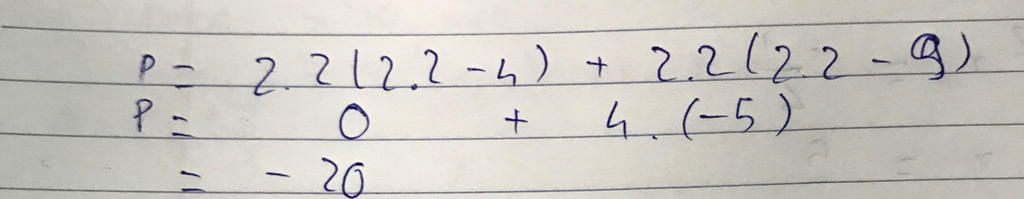 P = 2.2(2.2-4) + 2.2(2.2-9)
P = 0 + 4.(-5)
= -20